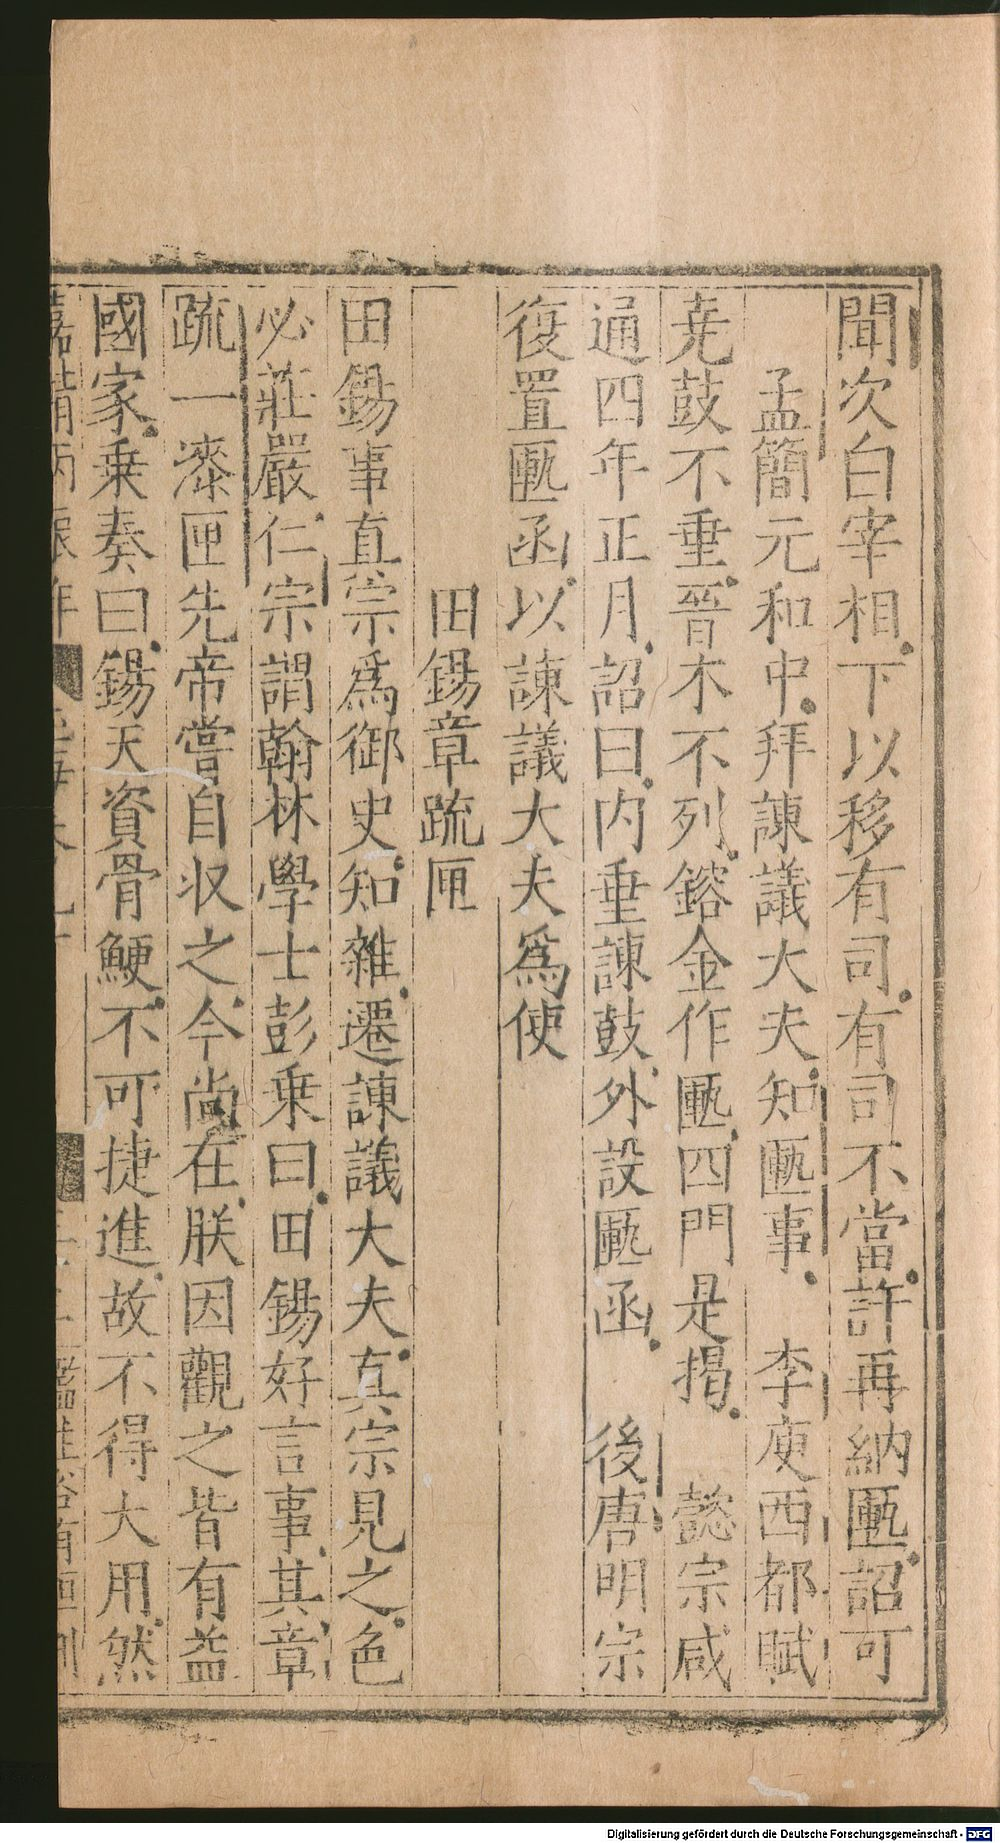 聞次白宰相下以移有司有司不當許再納匭詔可
孟簡元和中拜諫議大夫知匭事 李庾西都賦
堯鼓不垂晉木不列鎔金作匭四門是揭 懿宗咸
通四年正月詔曰內垂諫鼓外設匭函 後唐明宗
復置匭函以諫議大夫爲使
田錫章疏匣
田錫事真宗爲御史知雜遷諫議大夫真宗見之色
必莊嚴仁宗謂翰林學士彭乗曰田錫好言事其章
疏一漆匣先帝嘗自収之今尚在朕因觀之皆有益
國家乗奏曰錫天資骨鯁不可捷進故不得大用然
嘉靖丙辰年
Digitalisierung gefördert durch die Deutsche Forschungsgemeinschaft - DFG